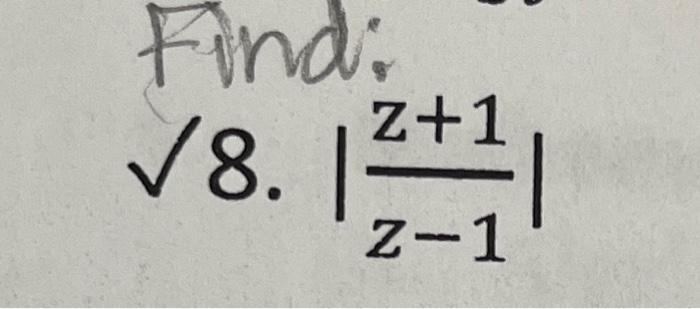 Find:
√8. |z+1
z-1|